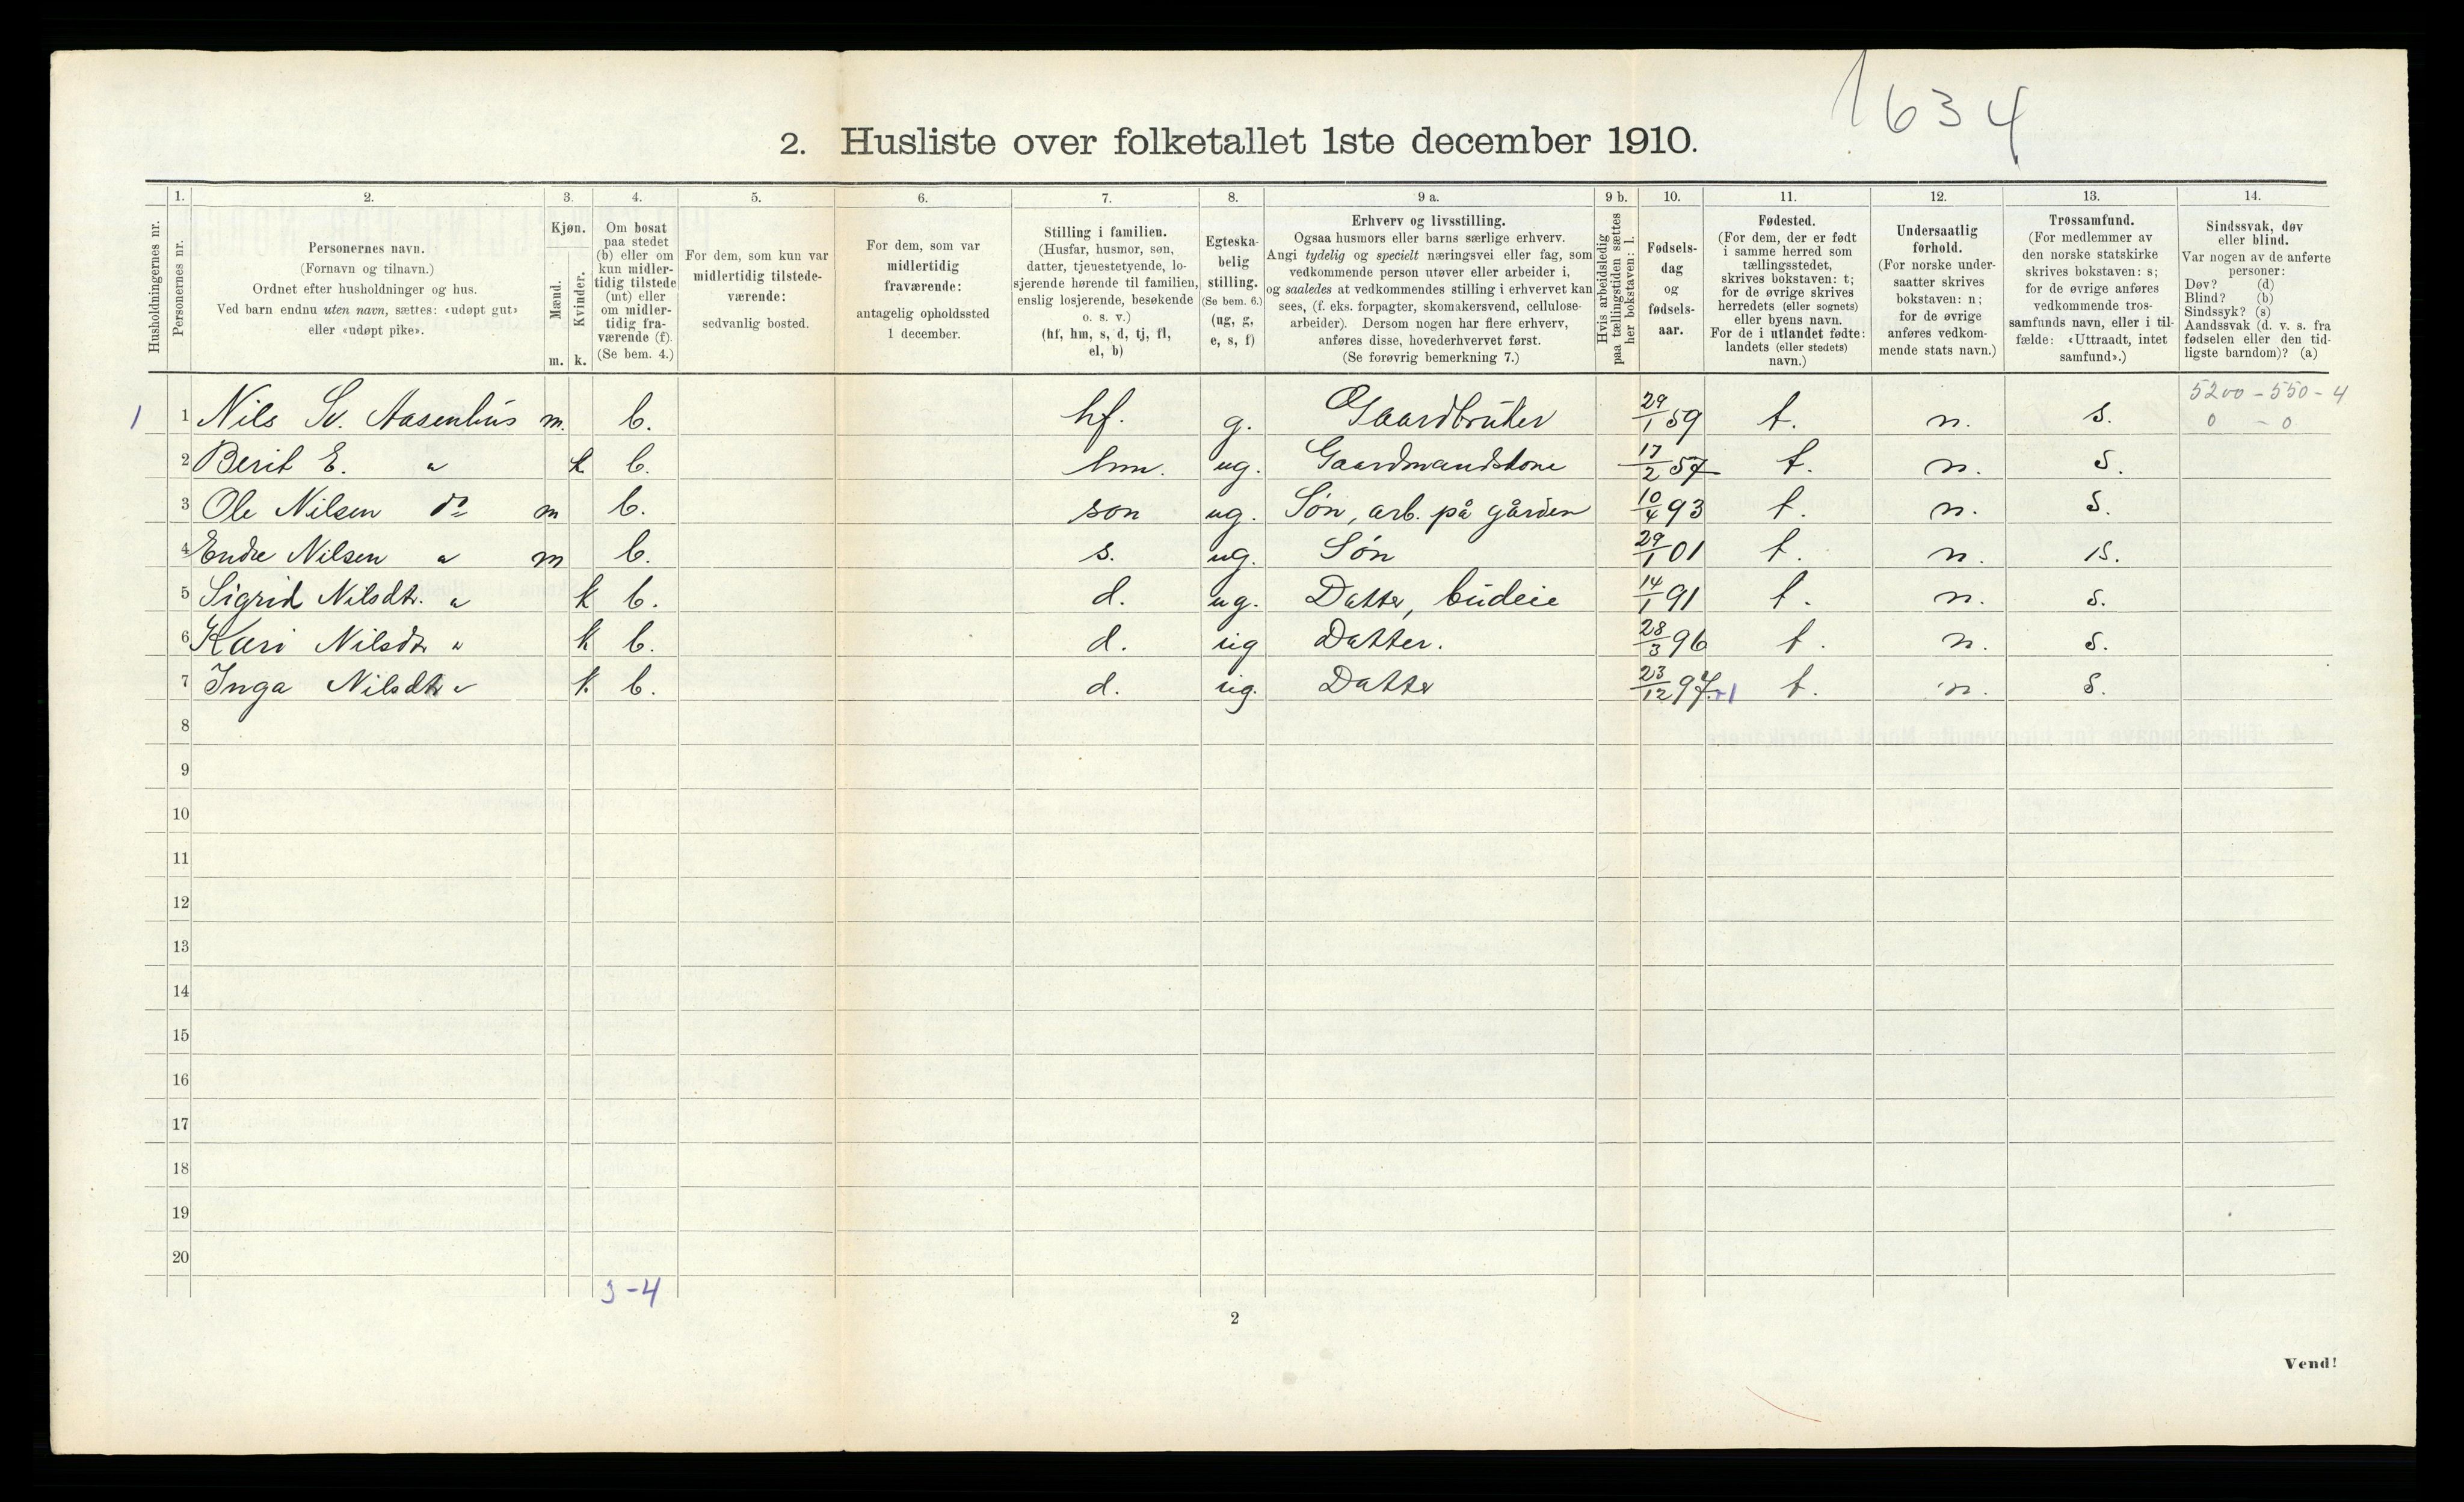 1634
2. Husliste over folketallet 1ste december 1910.
Husholdningernes nr.
1. Personernes nr.
2. Personernes navn.
(Fornavn og tilnavn.)
Ordnet efter husholdninger og hus.
Ved barn endnu uten navn, sættes: «udøpt gut»
eller «udøpt pike».
3. Kjøn.
Mænd. m.
Kvinder. k.
4. Om bosat
paa stedet
(b) eller om
kun midler-
tidig tilstede
(mt) eller
om midler-
tidig fra-
værende (f).
(Se bem. 4.)
5. For dem, som kun var
midlertidig tilstede-
værende:
sedvanlig bosted.
6. For dem, som var
midlertidig
fraværende:
antagelig opholdssted
1 december.
7. Stilling i familien.
(Husfar, husmor, søn,
datter, tjenestetyende, lo-
sjerende hørende til familien,
enslig losjerende, besøkende
o. s. v.)
(hf, hm, s, d, tj, fl,
el, b)
8. Egteska-
belig
stilling.
(Se bem. 6.)
(ug, g,
e, s, f)
9 a. Erhverv og livsstilling.
Ogsaa husmors eller barns særlige erhverv.
Angi tydelig og specielt næringsvei eller fag, som
vedkommende person utøver eller arbeider i,
og saaledes at vedkommendes stilling i erhvervet kan
sees, (f. eks. forpagter, skomakersvend, cellulose-
arbeider). Dersom nogen har flere erhverv,
anføres disse, hovederhvervet først.
(Se forøvrig bemerkning 7.)
9 b. Hvis arbeidsledig
paa tællingstiden sættes
her bokstaven: l.
10. Fødsels-
dag
og
fødsels-
aar.
11. Fødested.
(For dem, der er født
i samme herred som
tællingsstedet,
skrives bokstaven: t;
for de øvrige skrives
herredets (eller sognets)
eller byens navn.
For de i utlandet fødte:
landets (eller stedets)
navn.)
12. Undersaatlig
forhold.
(For norske under-
saatter skrives
bokstaven: n;
for de øvrige
anføres vedkom-
mende stats navn.)
13. Trossamfund.
(For medlemmer av
den norske statskirke
skrives bokstaven: s;
for de øvrige anføres
vedkommende tros-
samfunds navn, eller i til-
fælde: «Uttraadt, intet
samfund».)
14. Sindssvak, døv
eller blind.
Var nogen av de anførte
personer:
Døv? (d)
Blind? (b)
Sindssyk? (s)
Aandssvak (d. v. s. fra
fødselen eller den tid-
ligste barndom)? (a)
5200 - 550 - 4
0 - 0
1 1 Nils Sv. Aasenhus m. b. hf. g. Gaardbruker 29/1 59 t. n. s.
2 Berit E. " k b. hm. ug. Gaardmandskone 17/2 57 t. n. s.
3 Ole Nilsen do m b. son ug. Søn, arb. på gården 10/4 93 t. n. s.
4 Endre Nilsen " m b. s. ug. Søn 29/1 01 t. n. s.
5 Sigrid Nilsdtr. " k b. d. ug. Datter, budeie 14/1 91 t. n. s.
6 Kari Nilsdtr " k b. d. ug Datter. 28/3 96 t. n. s.
7 Inga Nilsdtr " k. b. d. ug. Datter 23/12 97 t. n. s.
8
9
10
11
12
13
14
15
16
17
18
19
20
3-4
2
Vend!